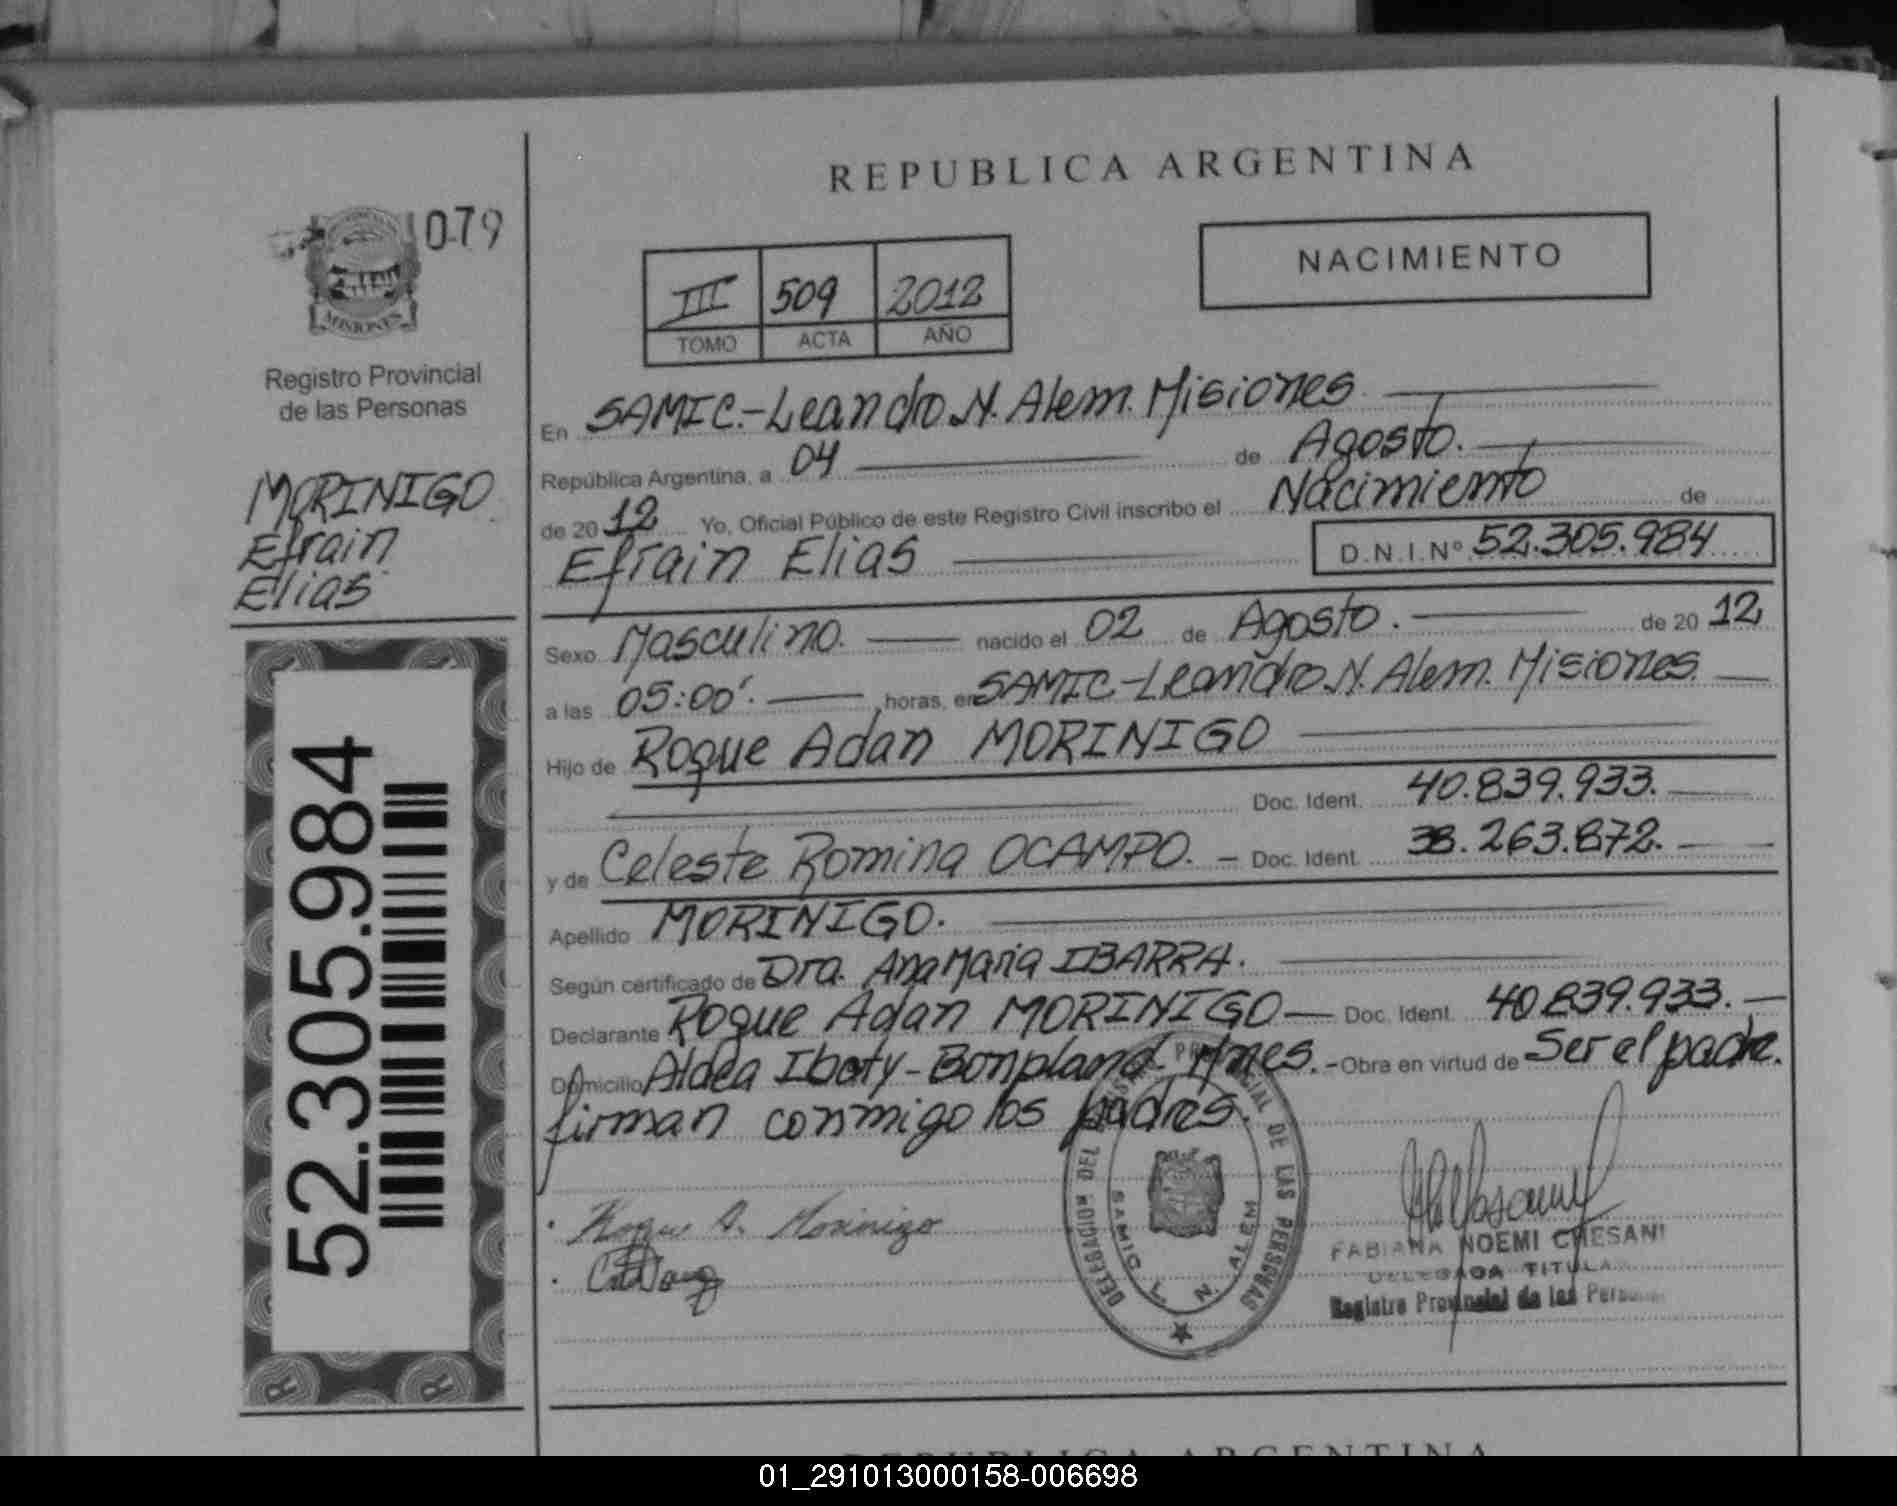 REPUBLICA ARGENTINA
079
MISIONES
Registro Provincial
de las Personas
MORINIGO
Efrain
Elias
52.305.984
R R
III 509 2012
TOMO ACTA AÑO
NACIMIENTO
En SAMIC.-Leandro N. Alem. Misiones
República Argentina, a 04 de Agosto.
de 2012 Yo, Oficial Público de este Registro Civil inscribo el Nacimiento de
Efrain Elias D.N.I.Nº 52.305.984
Sexo Masculino. nacido el 02 de Agosto. de 2012
a las 05:00'. horas, en SAMIC-Leandro N. Alem. Misiones.
Hijo de Roque Adan MORINIGO
Doc. Ident. 40.839.933.
y de Celeste Romina OCAMPO. - Doc. Ident. 38.263.872.
Apellido MORINIGO.
Según certificado de Dra. Ana Maria IBARRA.
Declarante Roque Adan MORINIGO Doc. Ident. 40.839.933.
Domicilio Aldea Iboty-Bonpland. Mnes. - Obra en virtud de Ser el padre.
firman conmigo los padres.
Roque A. Morinigo
DELEGACION DEL PROVINCIAL DE LAS PERSONAS
SAMIC L. N. ALEM
FABIANA NOEMI CHESANI
DELEGADA TITULAR
Registro Provincial de las Personas
REPUBLICA ARGENTINA
01_291013000158-006698